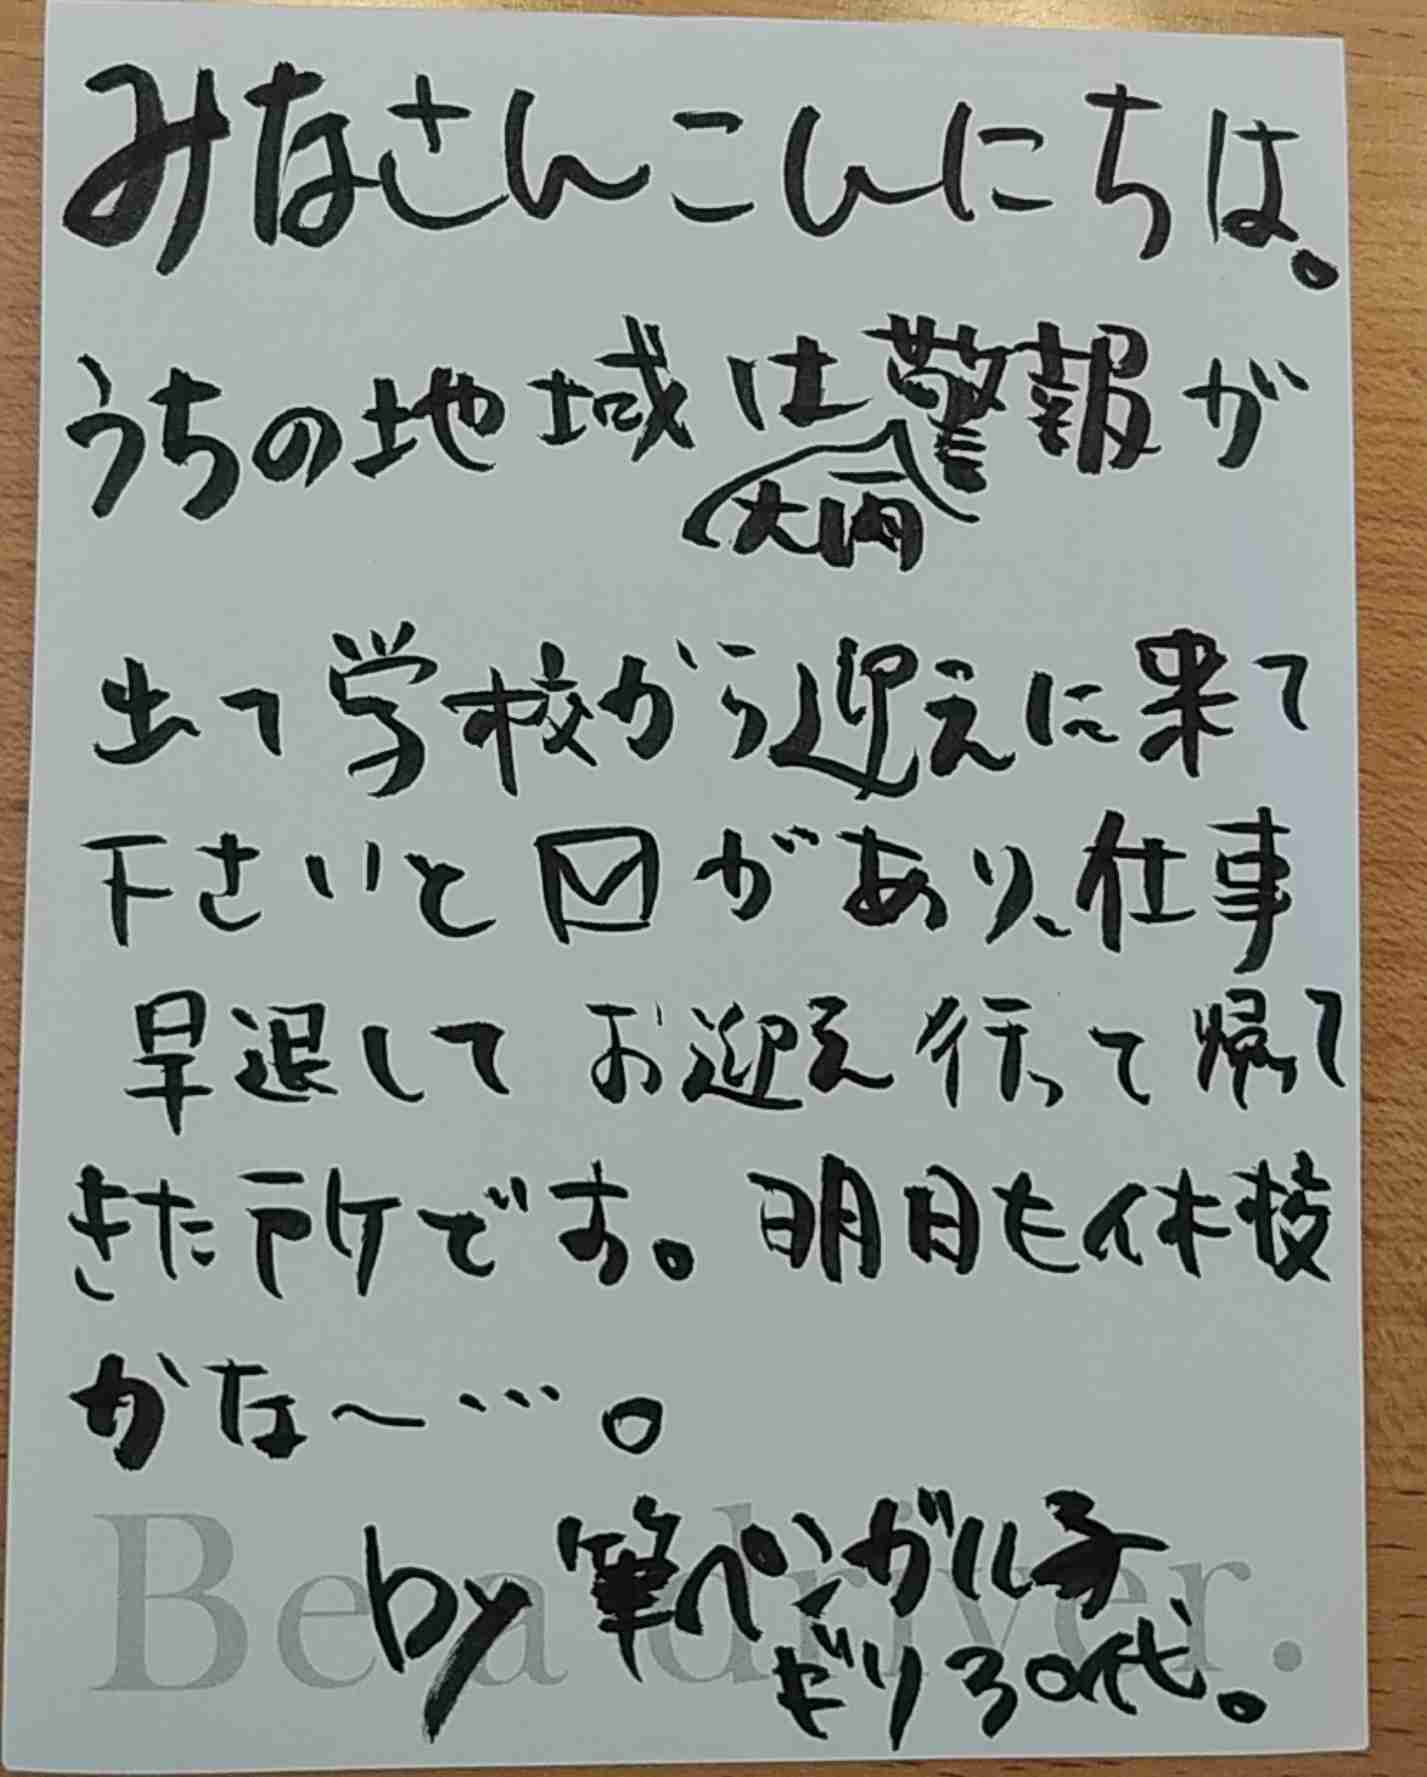 みなさんこんにちは。
うちの地域は大雨警報が
出て学校から迎えに来て
下さいと✉があり、仕事
早退してお迎え行って帰って
きた所です。明日も休校
かな〜…。
by 筆ペンガール子
ギリ30代。
Be a driver.